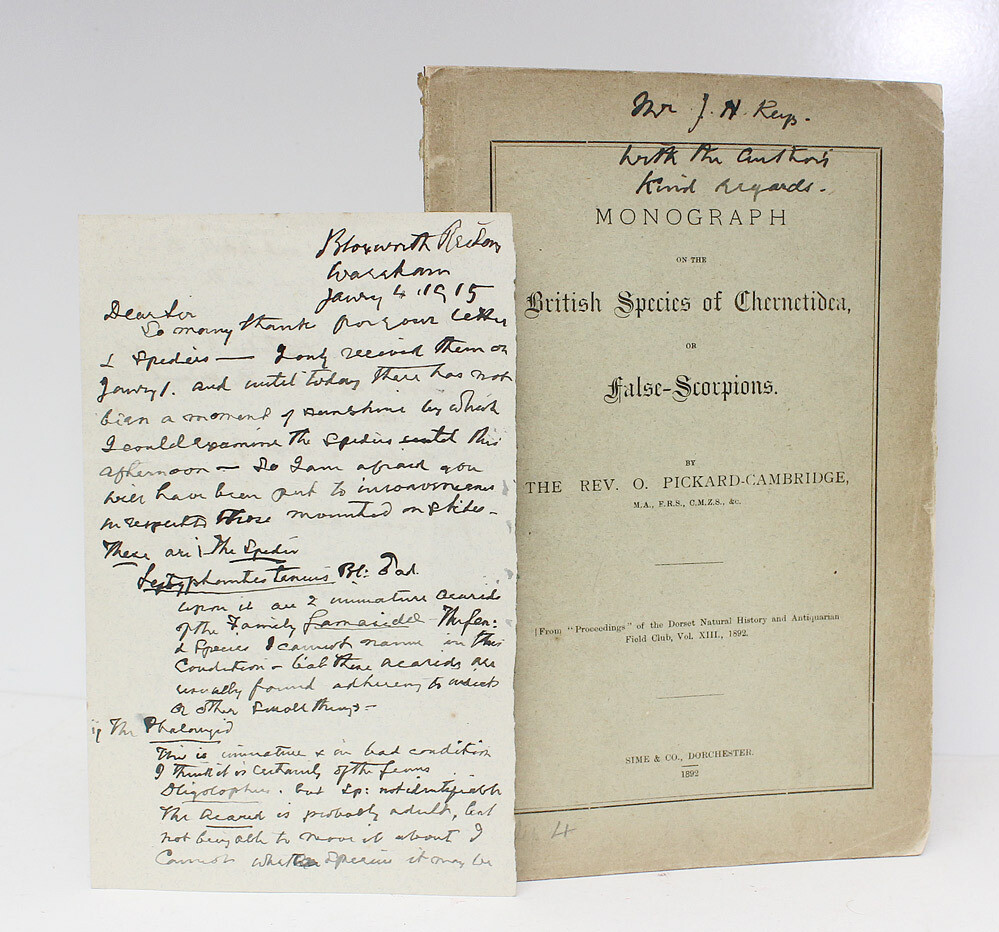 Mr J. H. Keys.
With the Author's
Kind regards.
MONOGRAPH
ON THE
British Species of Chernetidea,
OR
False-Scorpions.
BY
THE REV. O. PICKARD-CAMBRIDGE,
M.A., F.R.S., C.M.Z.S., &c.
[From "Proceedings" of the Dorset Natural History and Antiquarian
Field Club, Vol. XIII., 1892.
SIME & CO., DORCHESTER.
1892
4
Bloxworth Rectory
Wareham
Janry 4. 1915
Dear Sir
So many thanks for your letter
& Spiders — I only received them on
Janry 1. and until today there has not
been a moment of sunshine by which
I could examine the spiders until this
afternoon — So I am afraid you
will have been put to inconvenience
in respect to those mounted on slides -
These are i The Spider
Bl:
upon it are 2 immature acarids
of the Family Gamasidae The Gen:
& Species I cannot name in this
Condition - but these acarids are
usually found adhering to insects
or other small things -
ij The Phalangid
This is immature & in bad condition
I think it is certainly of the Genus
Oligolophus. but sp: not identifiable
The Acarid is probably adult, but
not being able to move it about I
Cannot species it may be